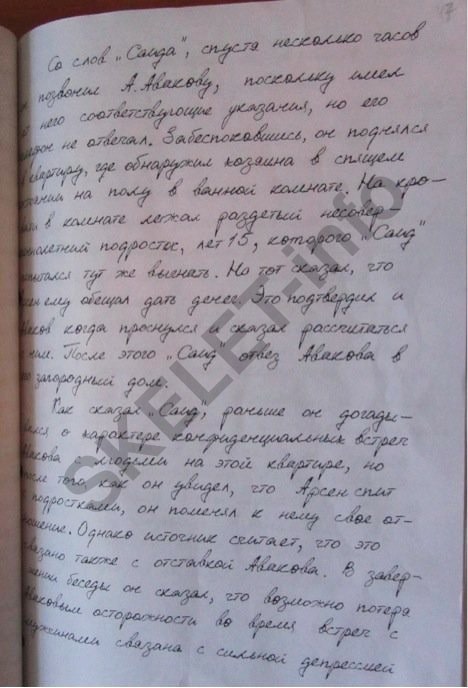 17
Со слов „Саида", спустя несколько часов
он позвонил А.Авакову, поскольку имел
от него соответствующие указания, но его
телефон не отвечал. Забеспокоившись, он поднялся
в квартиру, где обнаружил хозяина в спящем
состоянии на полу в ванной комнате. На кро-
вати в комнате лежал раздетый несовер-
шеннолетний подросток, лет 15, которого „Саид"
попытался тут же выгнать. Но тот сказал, что
Арсен ему обещал дать денег. Это подтвердил и
Аваков когда проснулся и сказал рассчитаться
с ним. После этого „Саид" отвез Авакова в
его загородный дом.
Как сказал „Саид", раньше он догады-
вался о характере конфиденциальных встреч
Авакова с людьми на этой квартире, но
после того, как он увидел, что Арсен спит
с подростками, он поменял к нему свое от-
ношение. Однако источник считает, что это
связано также с отставкой Авакова. В завер-
шении беседы он сказал, что возможно потеря
Аваковым осторожности во время встреч с
мужчинами связана с сильной депрессией
SKELET-info